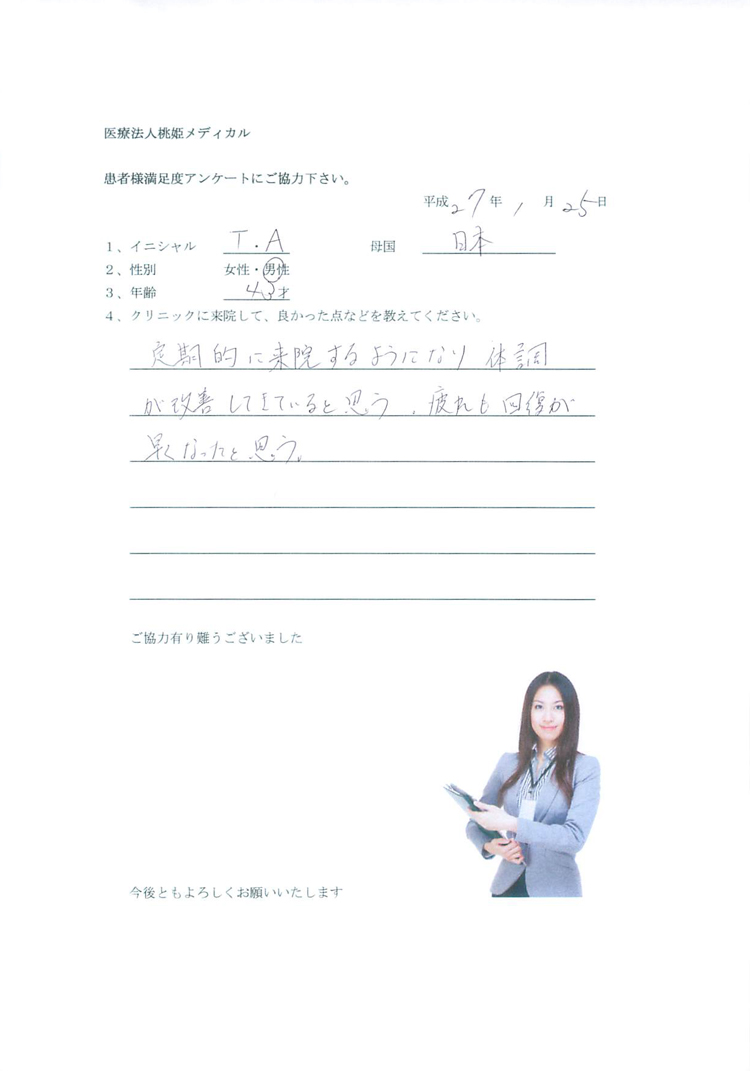 医療法人桃姫メディカル
患者様満足度アンケートにご協力下さい。
平成27年1月25日
1、イニシャル T.A 母国 日本
2、性別 女性・男性
3、年齢 43才
4、クリニックに来院して、良かった点などを教えてください。
定期的に来院するようになり 体調
が改善してきていると思う、疲れも回復が
早くなったと思う。
ご協力有り難うございました
今後ともよろしくお願いいたします